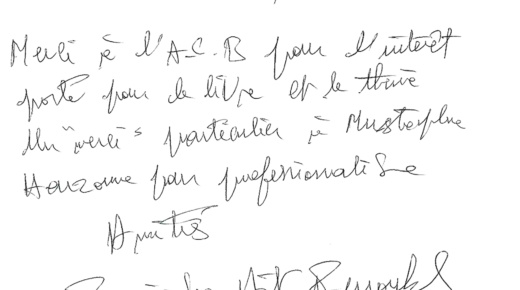 Merci à l'A.C.B pour l'intérêt
porté pour le livre et le thème
Un "merci" particulier à Mustapha
pour professionalisme
Amitiés